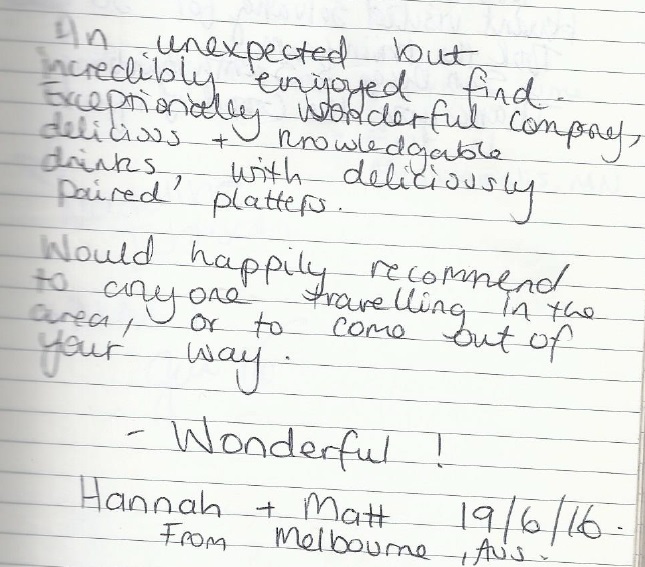 An unexpected but
incredibly enjoyed find.
Exceptionally wonderful company,
delicious + knowledgable
drinks, with deliciously
paired platters.
Would happily recommend
to anyone travelling in the
area, or to come out of
your way.
- Wonderful !
Hannah + Matt 19/6/16.
From Melbourne, Aus.